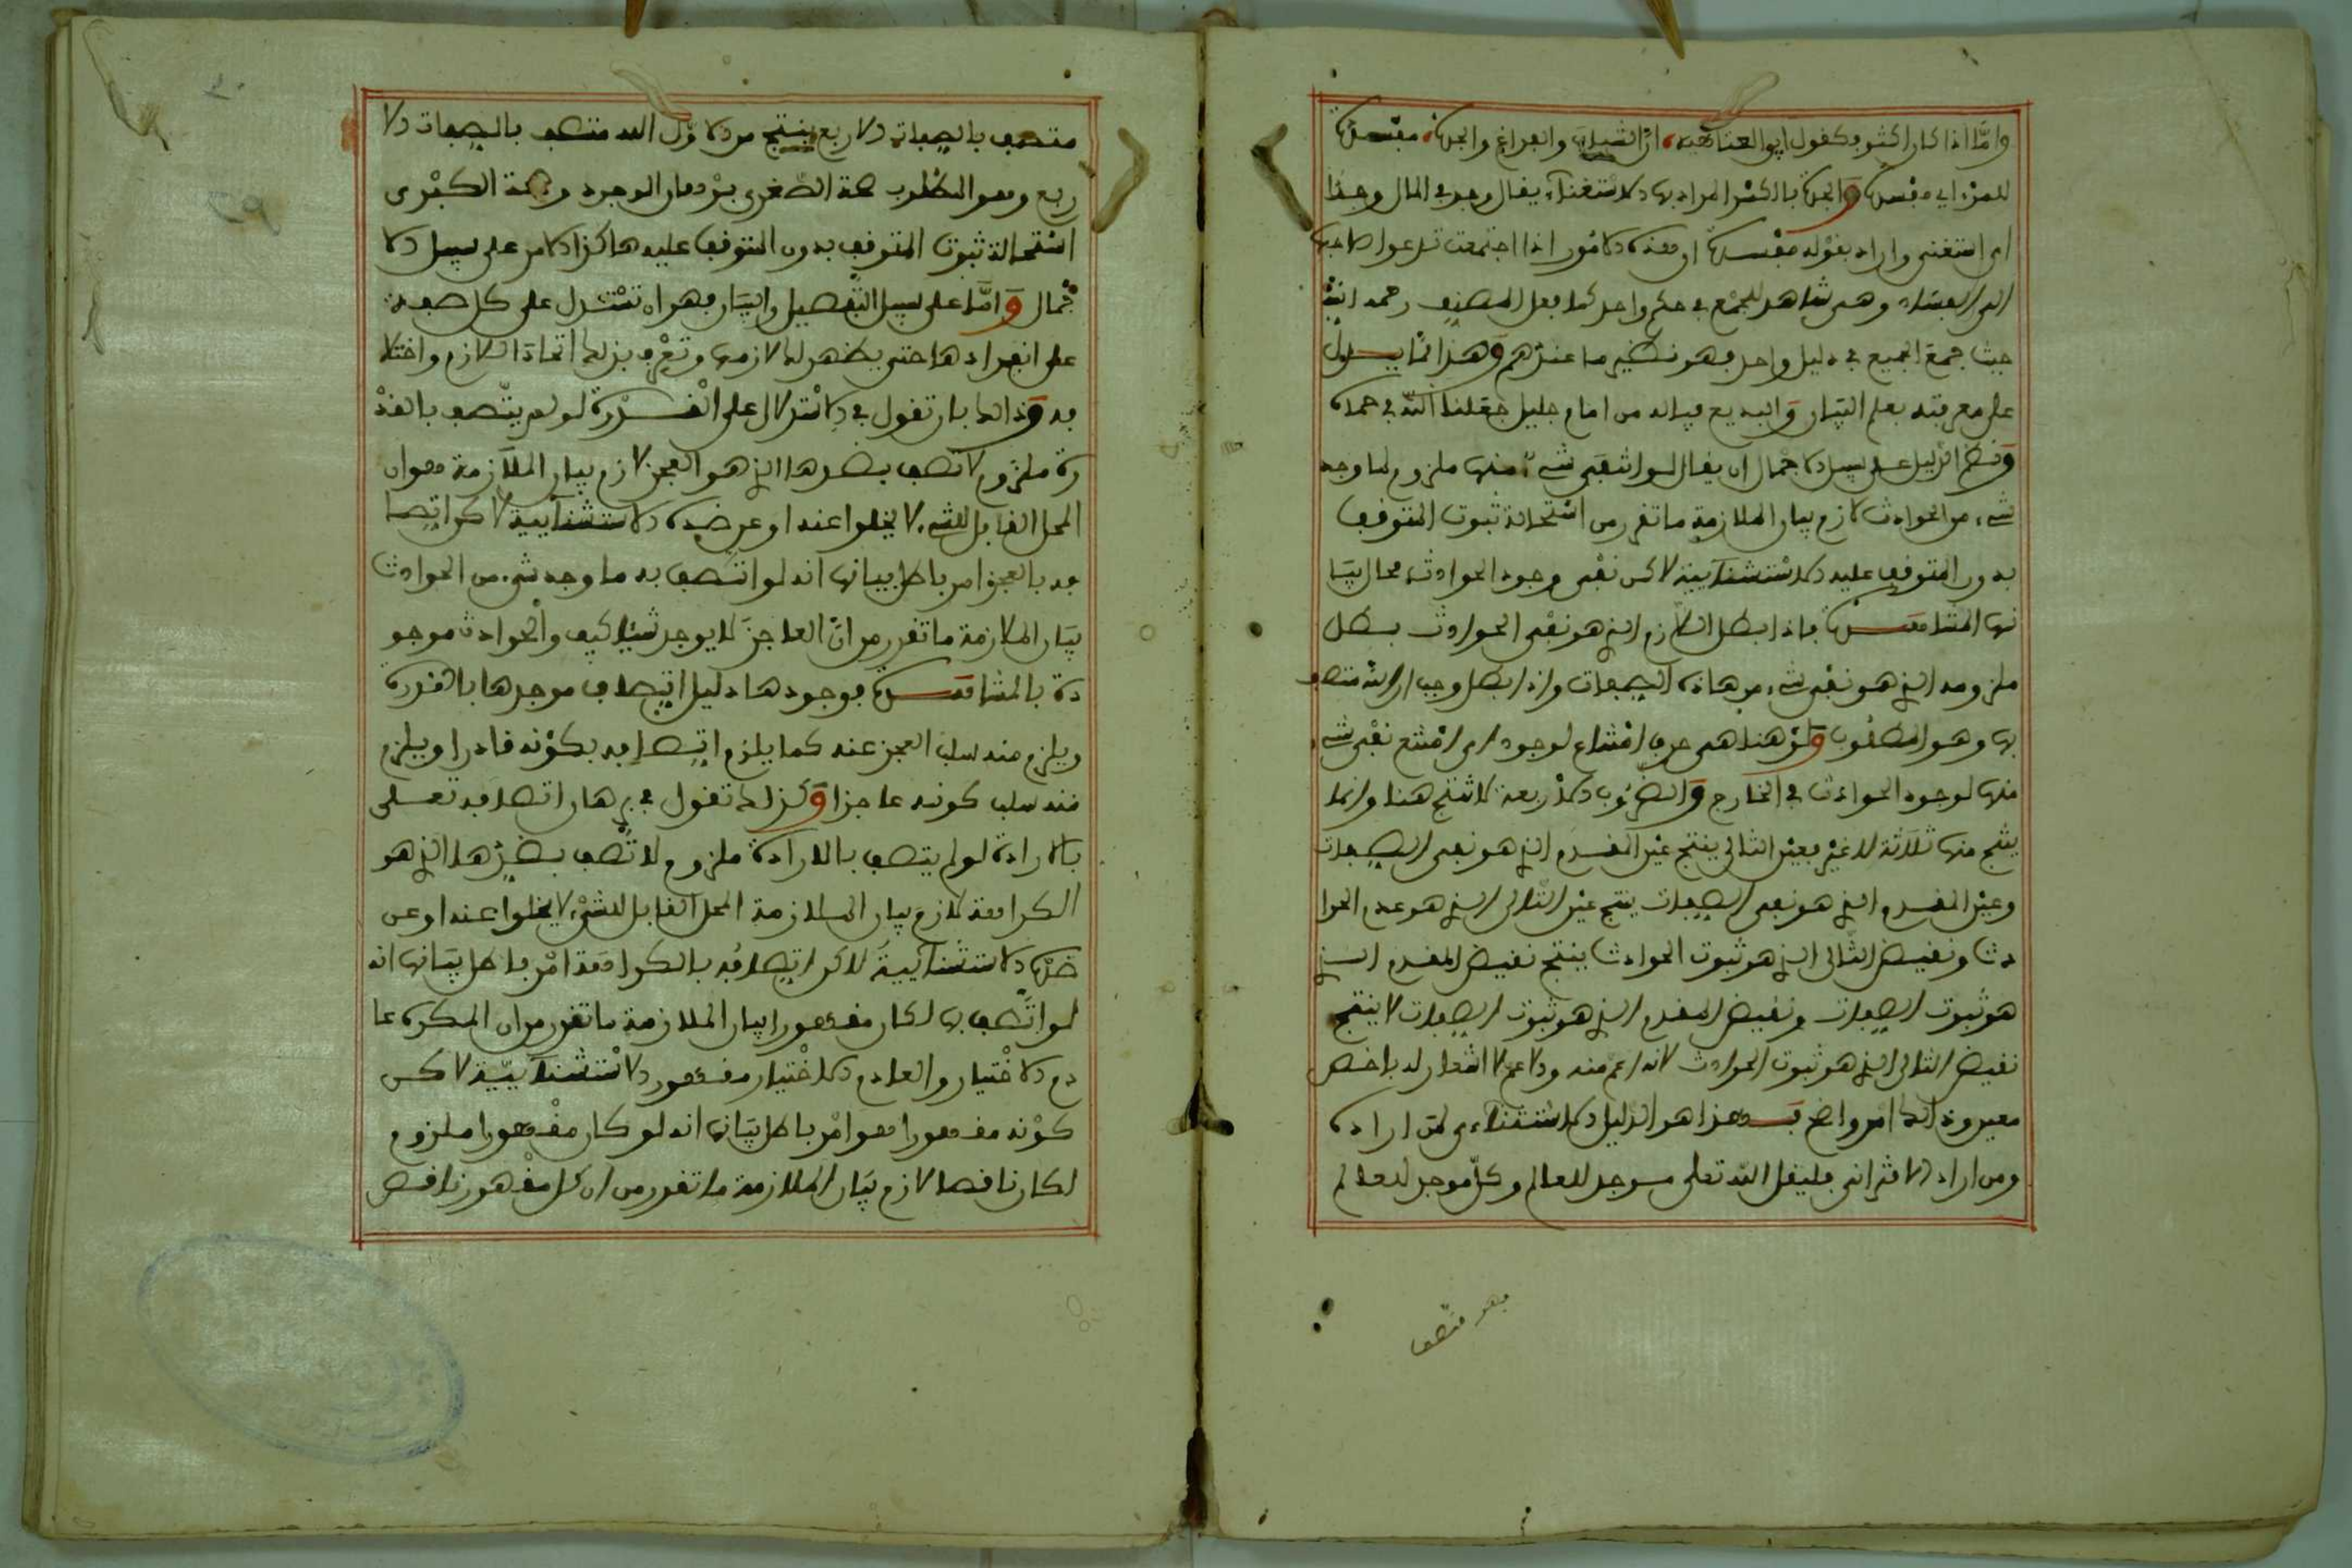 وامّا اذا كان اكثر فكقول ابو العتاهية، ان الشباب والفراغ والجدة، مفسدة
للمرء اي مفسدة والجدة بالكسر المراد بها الاستغناء يقال وجد في المال وجدا
اى استغنى واراد بقوله مفسدة ان هذه الامور اذا اجتمعت تدعوا صاحبها
الى الفساد وهى شاهد للجمع في حكم واحد كما فعل المصنف رحمه الله
حيث جمع الجميع في دليل واحد فهو نظير ما عندهم وهذا مما يدل
على معرفته بعلم البيان والبديع فياله من امام جليل جعلنا اللّه في حماه
ونظم الدليل على سبيل الاجمال ان يقال لو انتفى شىء منها ملزوم لما وجد
شىء من الحوادث لازم بيان الملازمة ما تقرر من استحالة ثبوت المتوقف
بدون المتوقف عليه الاستثنآيية لاكن نفى وجود الحوادث محال بيا
نها المشاهدة فاذا بطل اللازم الذى هو نفى الحوادث بطل
ملزومه الذى هو نفى شىء من هاذه الصفات واذا بطل وجب ان الله متصف
بها وهو المطلوب ولو هنا هى حرف امتناع لوجود اى امتنع نفى شىء
منها لوجود الحوادث في الخارج والضروب الاربعة لا تنتج هنا وانما
ينتج منها ثلاثة لا غير فعين التالى ينتج عين المقدم الذى هو نفى الصفات
وعين المقدم الذى هو نفى الصفات ينتج عين التالى الذى هو عدم الحوا
دث ونقيض التالى الذى هو ثبوت الحوادث ينتج نقيض المقدم الذى
هو ثبوت الصفات ونقيض المقدم الذى هو ثبوت الصفات لا ينتج
نقيض التالى الذى هو ثبوت الحوادث لانه اعم منه والاعم لا اشعار له باخص
معين وذالك امر واضح وهذا هو الدليل الاستثناءى لمن اراده
ومن اراد الاقترانى فليقل اللّه تعلى موجد للعالم وكلّ موجد للعالم
فهو متصف
متصف بالصفات الاربع ينتج من الاوّل الله متصف بالصفات الا
ربع وهو المطلوب حجة الصّغرى برهان الوجود وحجة الكبرى
استحالة ثبوت المتوقف بدون المتوقف عليه هاكذا الامر على سبيل الا
جمال وامّا على سبيل التّفصيل والبيان فهو ان تستدل على كل صفة
على انفرادها حتى يظهر لك لازمها وتعرف بذلك اتحاد اللازم واختلا
فه وذالك بان تقول في الاستدلال على القدرة لو لم يتّصف بالقد
رة ملزوم لاتصف بضدها الذى هو العجز لازم بيان الملازمة هو ان
المحل القابل للشىء لا يخلوا عنه او عن ضده الاستثنآيية لاكن اتصا
فه بالعجز امر باطل بيانها انه لو اتصف به ما وجد شىء من الحوادث
بيان الملازمة ما تقرر من انّ العاجز لا يوجد شيئا كيف والحوادث موجو
دة بالمشاهدة فوجودها دليل اتصاف موجدها بالقدرة
ويلزم منه سلب العجز عنه كما يلزم اتصافه بكونه قادرا ويلزم
منه سلب كونه عاجزا وكذالك تقول في برهان اتصافه تعلى
بالارادة لو لم يتصف بالارادة ملزوم لاتّصف بضدها الذى هو
الكراهة لازم بيان الملازمة المحل القابل للشىء لا يخلوا عنه او عن
ضده الاستثنآيية لاكن اتصافه بالكراهة امر باطل بيانها انه
لو اتّصف بها لكان مقهورا بيان الملازمة ما تقرر من ان المكره عا
دم الاختيار والعادم الاختيار مقهور الاستثنآيية لاكن
كونه مقهورا هو امر باطل بيانها انه لو كان مقهورا ملزوم
لكان ناقصا لازم بيان الملازمة ما تقرر من ان كل مقهور ناقص